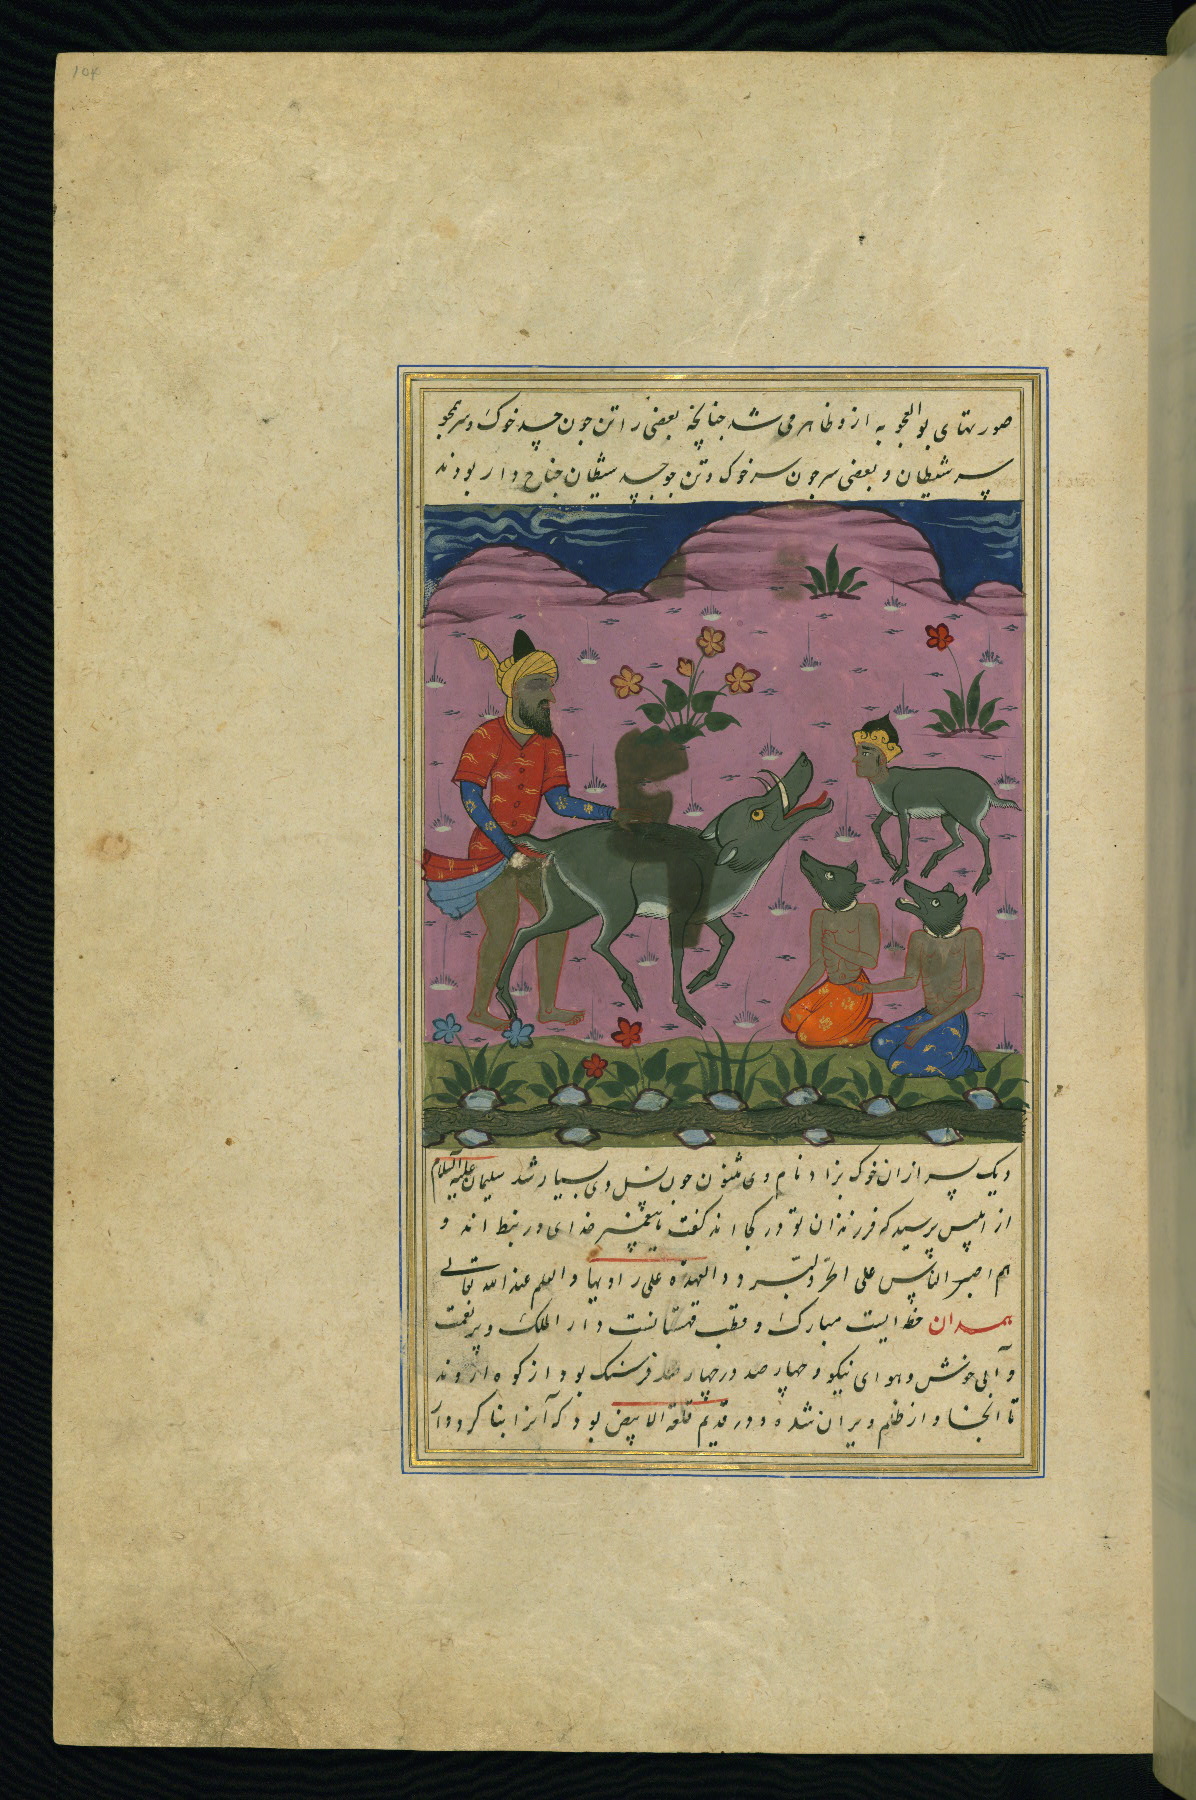 104
صورتهای بوالعجو به ازو ظاهر می شد چنانچه بعضی را تن چون چسد خوک و سر همچو
سر شیطان و بعضی سر چون سر خوک و تن چو جسد شیطان جناح دار بودند
و یک پسر از ان خوک بزاد نام وی چون نسل وی بسیار شد سلیمان علیه السلام
از ابلیس پرسید که فرزندان تو در کجا اند کفت یا پیغمبر خدای در نبط اند و
هم اصبر الناس علی الحر و البرد و العهدة علی راویها و العلم عند الله تعالی
همدان خطه ایست مبارک و قطب قهستانست دار الملک و پر نعمت
و آبی خوش و هوای نیکو و چهار صد در چهار صد فرسنک بود از کوه اروند
تا انجا و از ظلم ویران شده و در قدیم قلعة الابیض بود که آنرا بنا کرد دارا